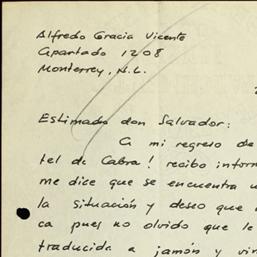 Alfredo Gracia Vicente
Apartado 1208
Monterrey, N.L.
Estimado don Salvador:
A mi regreso de
tel de Cabra! recibo inform
me dice que se encuentra
la situación y deseo que
ca pues no olvido que le
traducida a jamón y vin